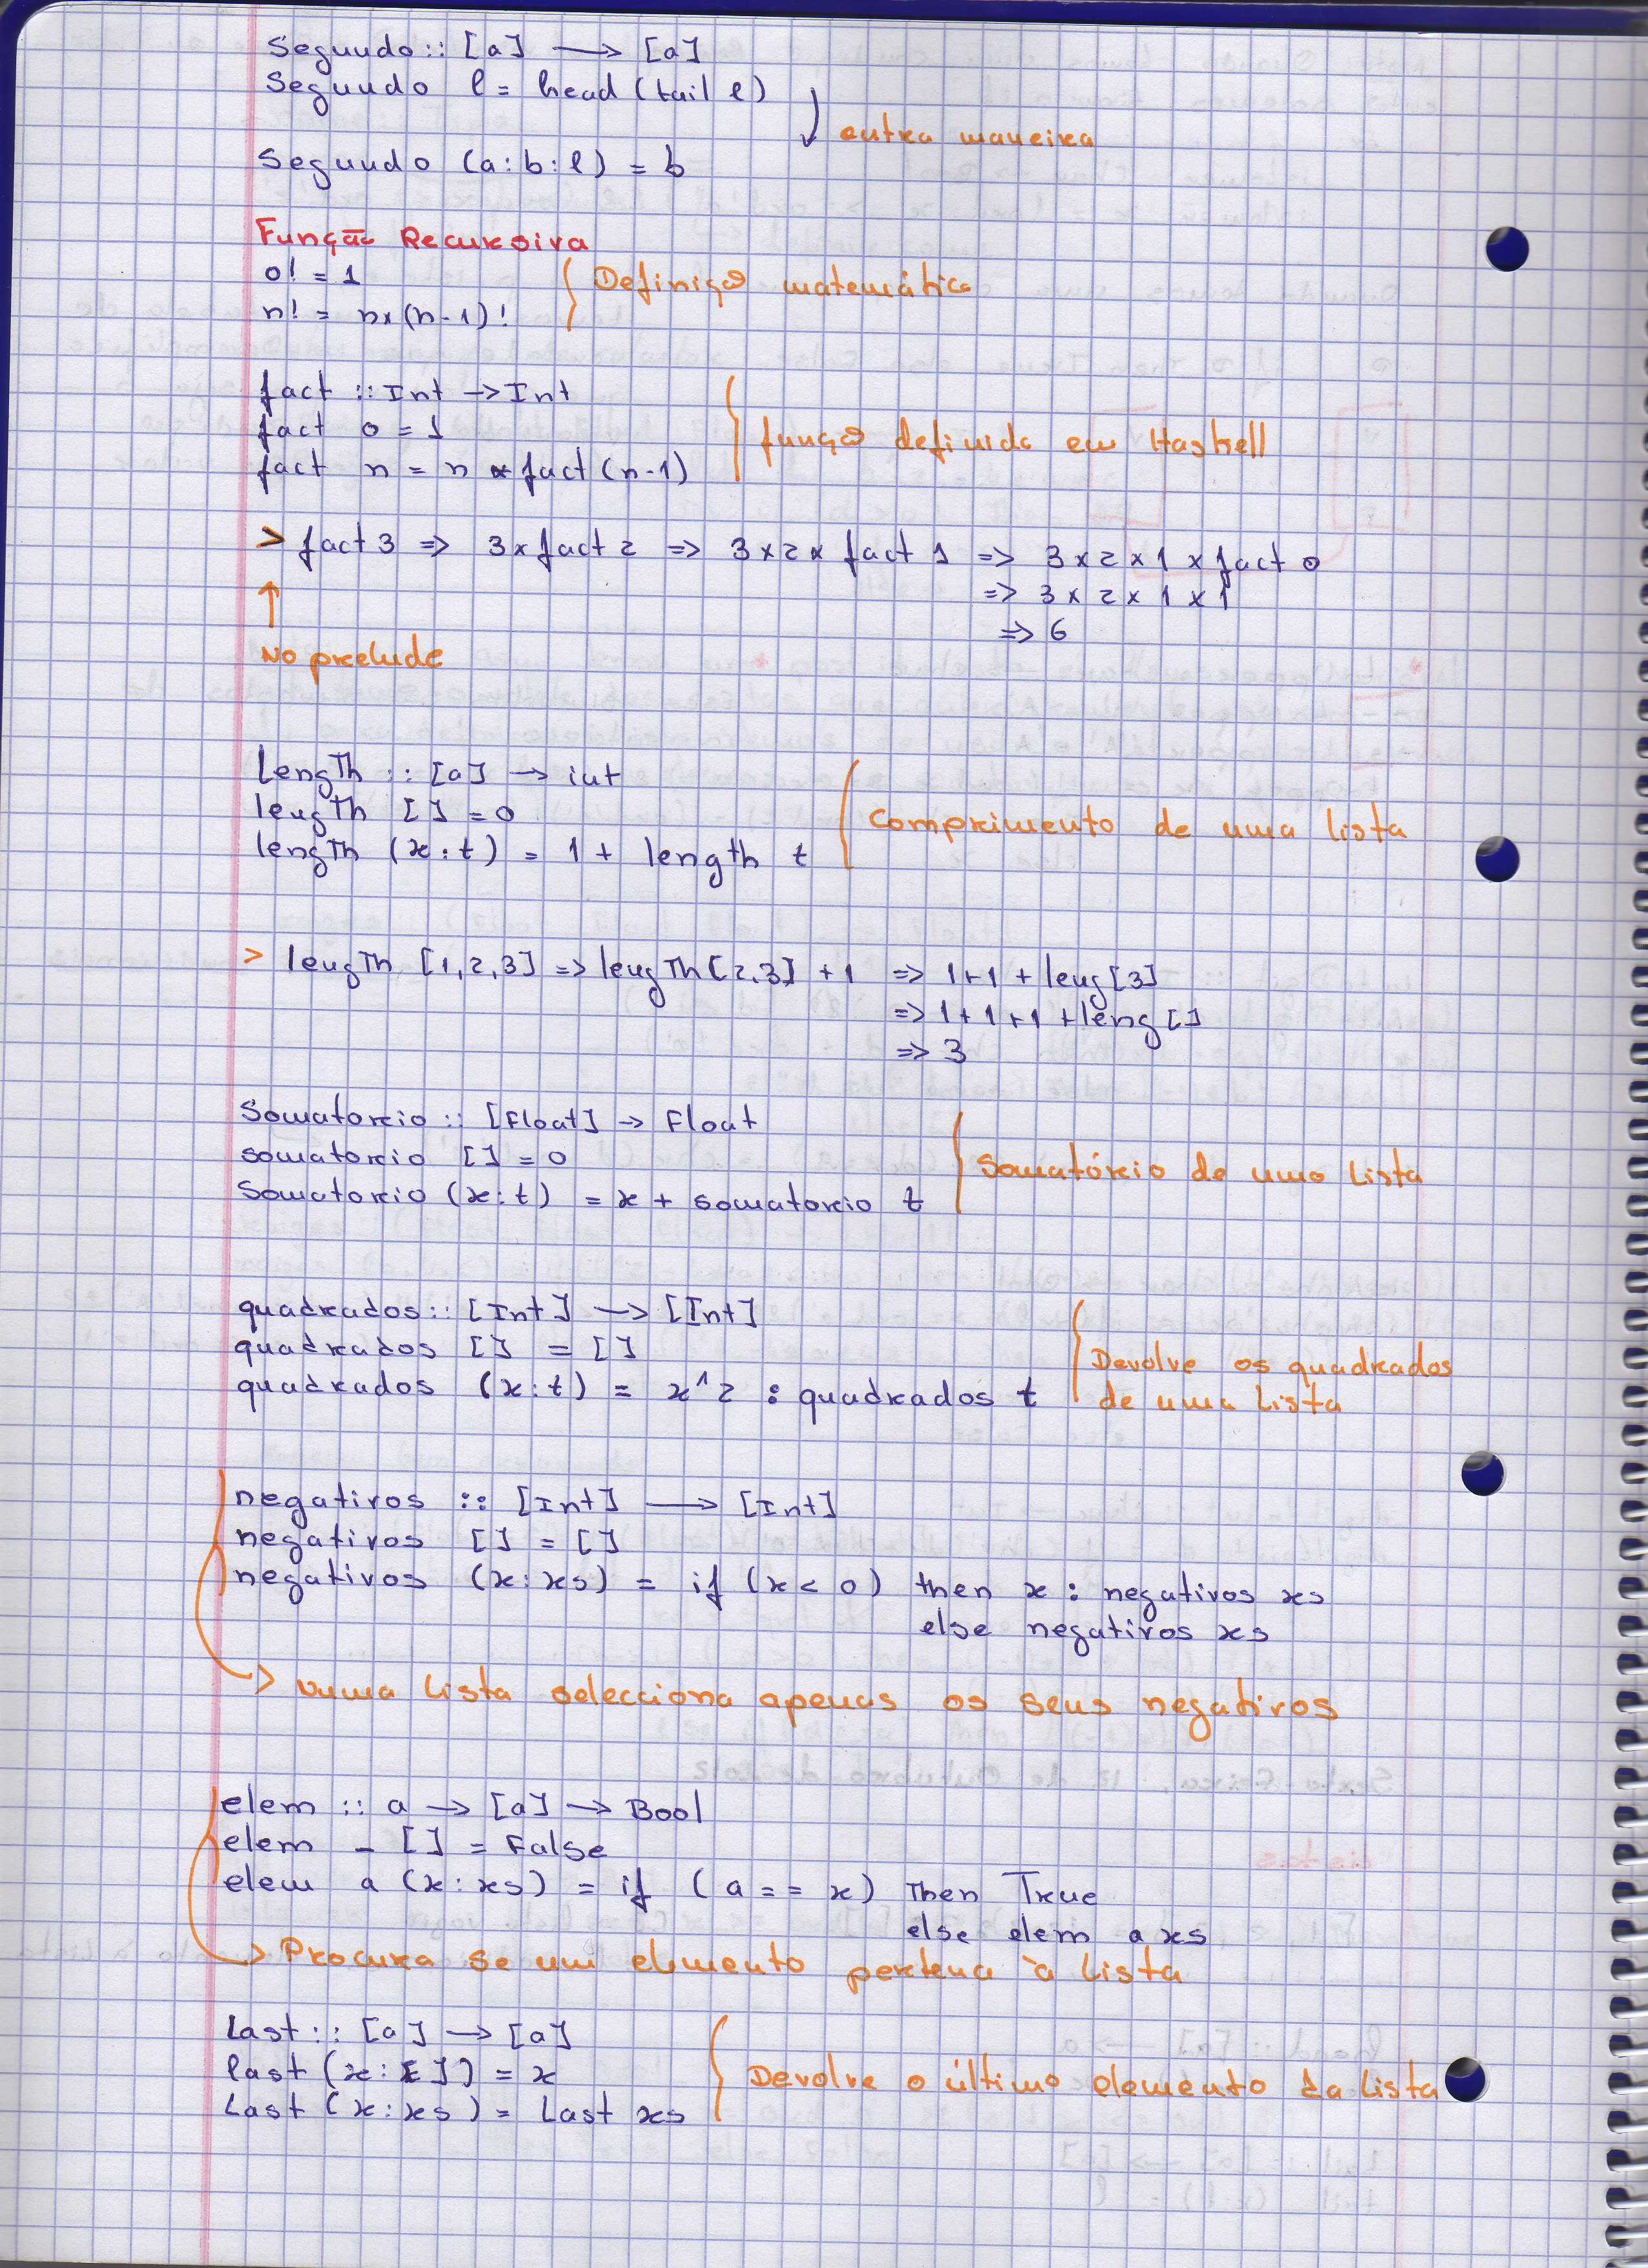 Segundo :: [a] → [a]
Segundo l = head (tail l)
outra maneira
Segundo (a:b:l) = b
Função Recursiva
0! = 1
n! = n x (n-1)!
Definição matemática
fact :: Int → Int
fact 0 = 1
fact n = n * fact (n-1)
função definida em Haskell
> fact 3 => 3 x fact 2 => 3 x 2 x fact 1 => 3 x 2 x 1 x fact 0
=> 3 x 2 x 1 x 1
=> 6
No prelude
Length :: [a] → int
length [] = 0
length (x:t) = 1 + length t
Comprimento de uma lista
> length [1,2,3] => length [2,3] + 1 => 1+1 + leng[3]
=> 1+1+1 + leng []
=> 3
Somatorio :: [Float] → Float
somatorio [] = 0
Somatorio (x:t) = x + somatorio t
Somatório de uma Lista
quadrados :: [Int] → [Int]
quadrados [] = []
quadrados (x:t) = x^2 : quadrados t
Devolve os quadrados
de uma Lista
negativos :: [Int] → [Int]
negativos [] = []
negativos (x:xs) = if (x < 0) then x : negativos xs
else negativos xs
> numa Lista selecciona apenas os seus negativos
elem :: a → [a] → Bool
elem _ [] = False
elem a (x:xs) = if (a == x) Then True
else elem a xs
> Procura se um elemento pertence à Lista
Last :: [a] → [a]
last (x:[]) = x
Last (x:xs) = Last xs
Devolve o último elemento da Lista